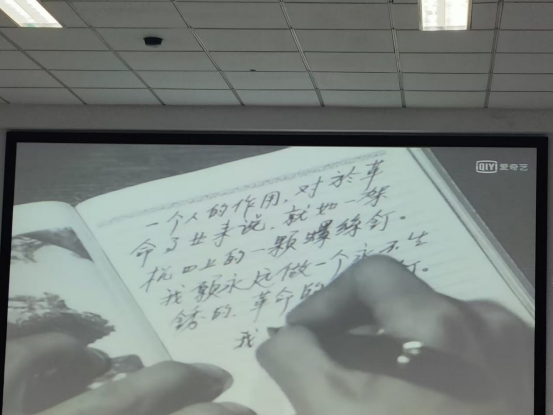 QIY 爱奇艺
一个人的作用，对於革
命事业来说，就如一架
机四上的一颗螺絲钉。
我願永远做一个永不生
銹的，革命的 钉。
我